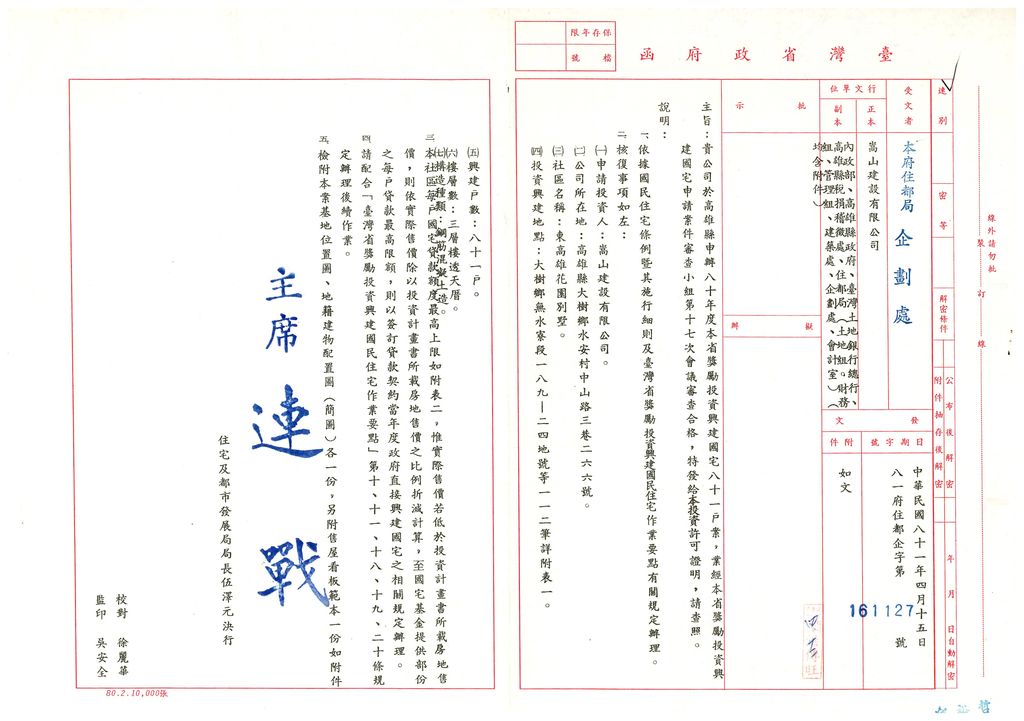 臺灣省政府函
保存年限
檔號
速別
密等
解密條件
公布後解密
附件抽存後解密
年月日自動解密
受文者
本府住都局 企劃處
行文單位
正本
嵩山建設有限公司
副本
內政部、高雄縣政府、臺灣土地銀行總行、
高雄縣稅捐稽徵處、住都局(土地組、財務
組、管理組、建築處、企劃處、會計室)(
均含附件)
發文
日期字號
中華民國八十一年四月十五日
八一府住都企字第161127號
附件
如文
批示
擬辦
主旨：貴公司於高雄縣申辦八十年度本省獎勵投資興建國宅八十一戶業，業經本省獎勵投資興
建國宅申請業件審查小組第十七次會議審查合格，特發給本投資許可證明，請查照。
說明：
一、依據國民住宅條例暨其施行細則及臺灣省獎勵投資興建國民住宅作業要點有關規定辦理。
二、核復事項如左：
㈠申請投資人：嵩山建設有限公司。
㈡公司所在地：高雄縣大樹鄉水安村中山路三巷二六六號。
㈢社區名稱：東高雄花園別墅。
㈣投資興建地點：大樹鄉無水寮段一八九—二四地號等一一二筆詳附表一。
㈤興建戶數：八十一戶。
㈥樓層數：三層樓透天厝。
㈦構造種類：鋼筋混凝土造。
三、本社區每戶國宅貸款額度最高上限如附表二，惟實際售價若低於投資計畫書所載房地售
價，則依實際售價除以投資計畫書所載房地售價之比例折減計算，至國宅基金提供部份
之每戶貸款最高限額，則以簽訂貸款契約當年度政府直接興建國宅之相關規定辦理。
四、請配合「臺灣省獎勵投資興建國民住宅作業要點」第十、十一、十八、十九、二十條規
定辦理後續作業。
五、檢附本業基地位置圖、地籍建物配置圖(簡圖)各一份，另附售屋看板範本一份如附件
主席 連戰
住宅及都市發展局局長伍澤元決行
校對 徐麗華
監印 吳安全
80.2.10,000張
線外請勿批
裝訂線